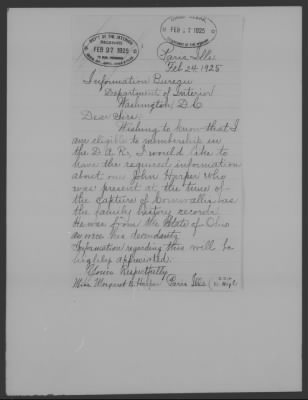 DEPT. OF THE INTERIOR
RECEIVED
FEB 27 1925
FEB 27 1925
Paris, Ills.
Feb 24 1925
Information Bureau
Department of Interior
Washington D.C.
Dear Sirs:
Wishing to know that I
am eligible to membership in
the D.A.R., I would like to
have the required information
about one John Harper who
was present at the time of
the capture of Cornwallis, as
the family history records.
He was from the State of Ohio
as were his
Information regarding this will be
highly appreciated.
Yours Respectfully
Miss Margaret B. Harper Paris Ills